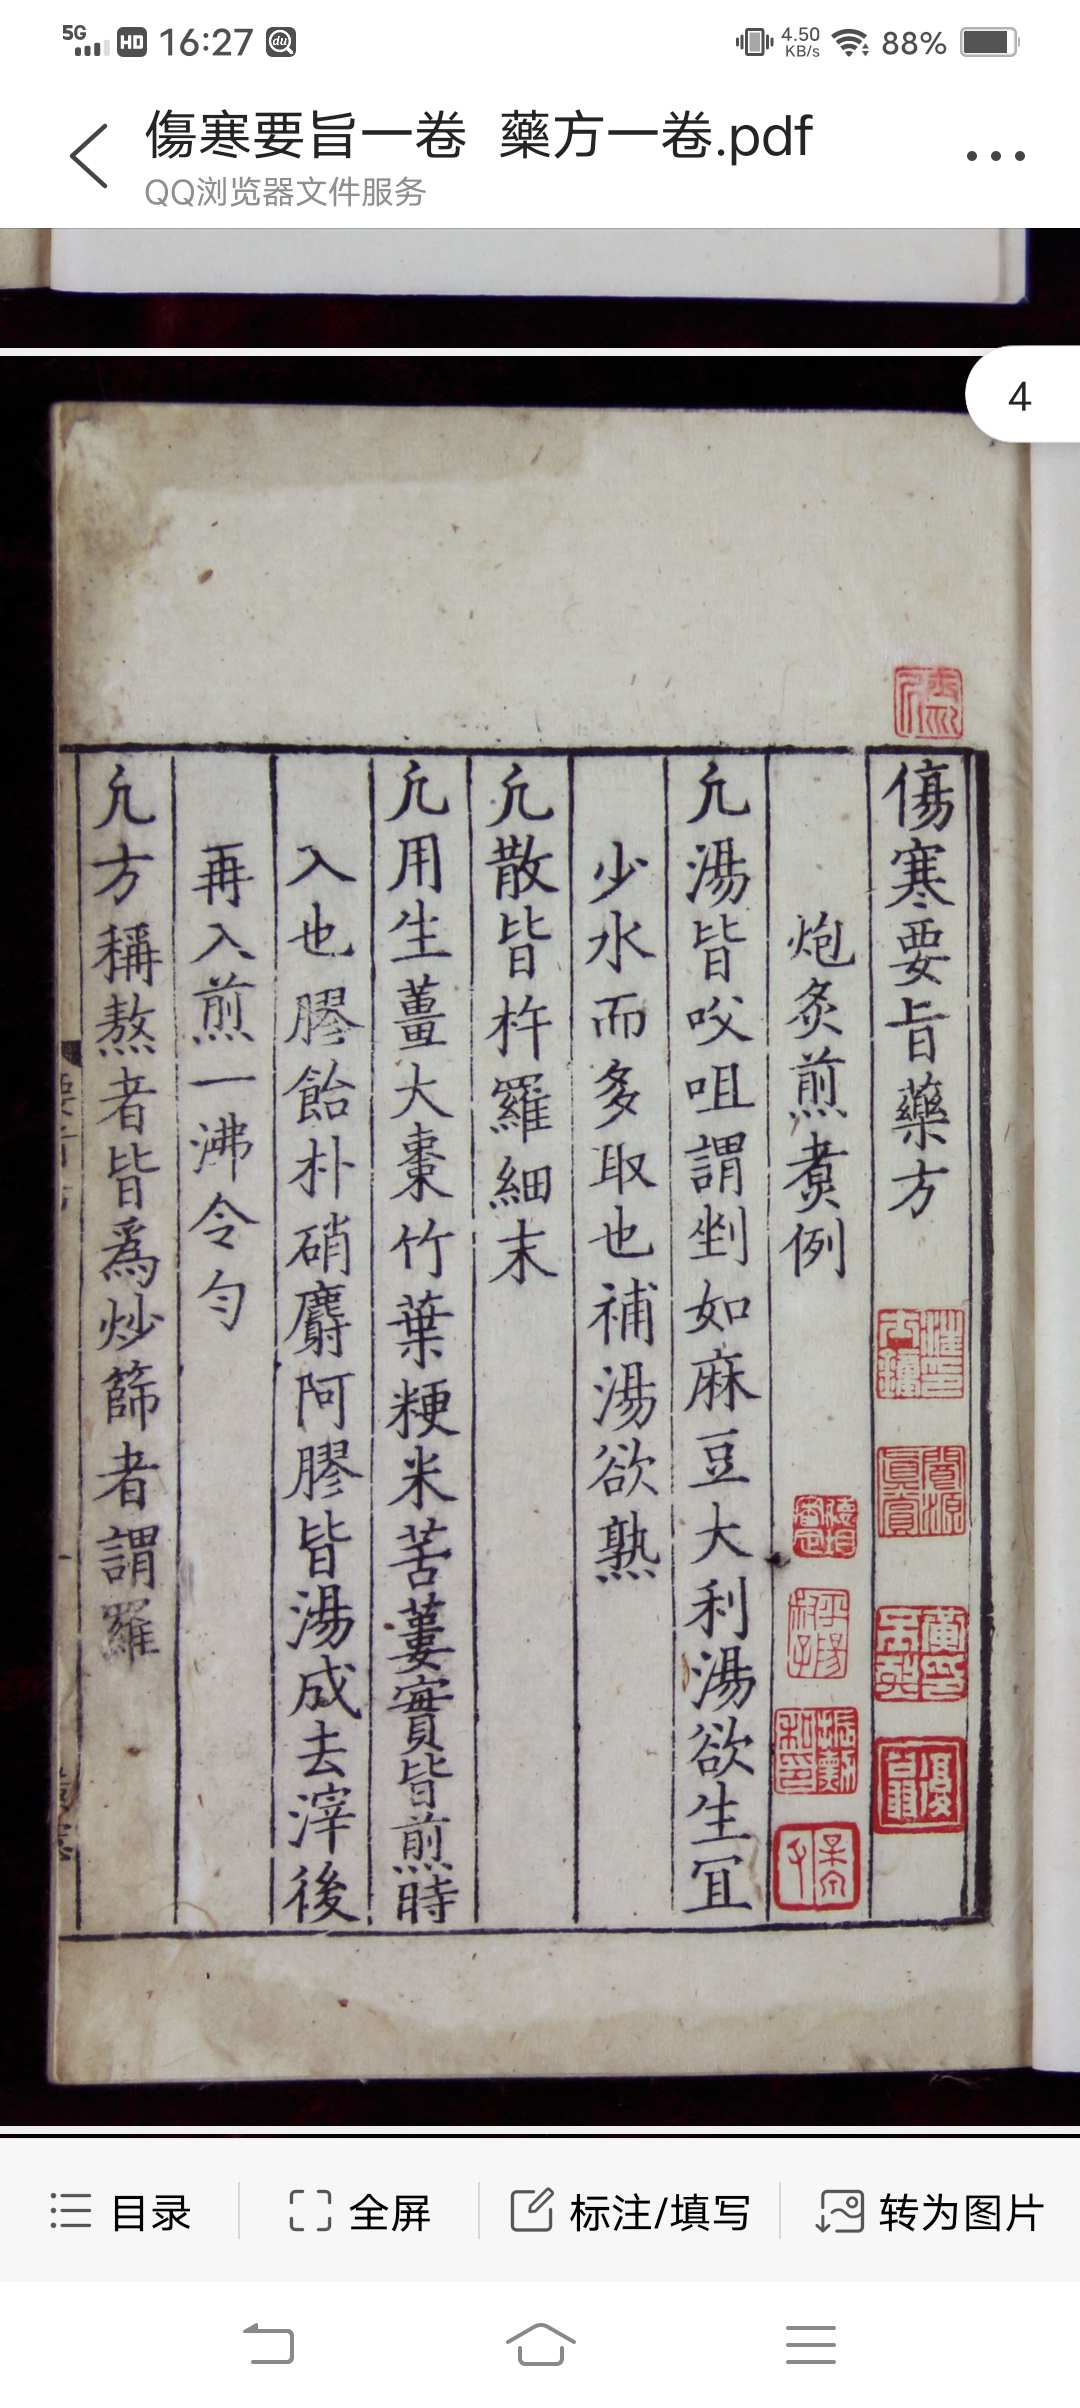 5G HD 16:27 du 4.50 KB/s 88%
傷寒要旨一卷 藥方一卷.pdf
QQ浏览器文件服务
4
傷寒要旨藥方
炮炙煎煑例
凢湯皆㕮咀謂剉如麻豆大利湯欲生冝
少水而多取也補湯欲熟
凢散皆杵羅細末
凢用生薑大棗竹葉粳米苦蔞實皆煎時
入也膠飴朴硝麝阿膠皆湯成去滓後
再入煎一沸令勻
凢方稱熬者皆爲炒篩者謂羅
目录
全屏
标注/填写
转为图片